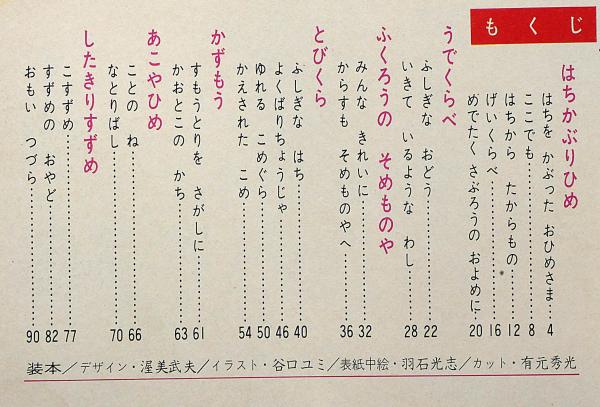 もくじ
はちかぶりひめ
はちを かぶった おひめさま……4
ここでも……8
はちから たからもの……12
げいくらべ……16
めでたく さぶろうの およめに……20
うでくらべ
ふしぎな おどう……22
いきて いるような わし……28
ふくろうの そめものや
みんな きれいに……32
からすも そめものやへ……36
とびくら
ふしぎな はち……40
よくばりちょうじゃ……46
ゆれる こめぐら……50
かえされた こめ……54
かずもう
すもうとりを さがしに……61
かおとこの かち……63
あこやひめ
ことの ね……66
なとりばし……70
したきりすずめ
こすずめ……77
すずめの おやど……82
おもい つづら……90
装本／デザイン・渥美武夫／イラスト・谷口ユミ／表紙中絵・羽石光志／カット・有元秀光